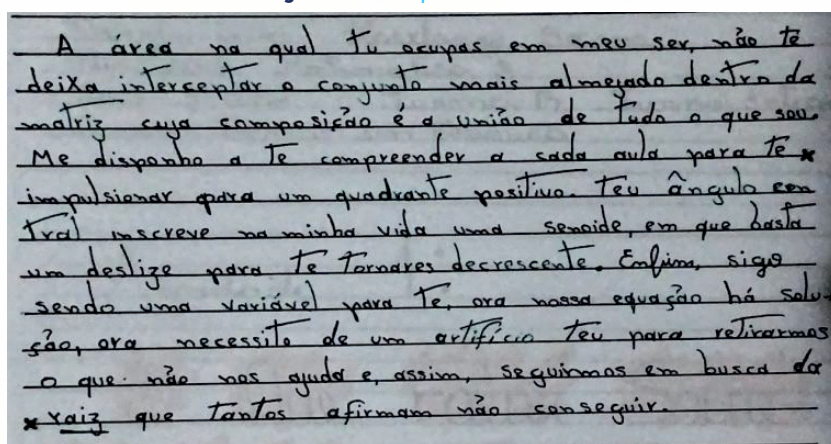 A área na qual tu ocupas em meu ser, não te
deixa interceptar o conjunto mais almejado dentro da
matriz cuja composição é a união de tudo o que sou.
Me disponho a te compreender a cada aula para te *
impulsionar para um quadrante positivo. Teu ângulo cen
tral inscreve na minha vida uma senoide, em que basta
um deslize para te tornares decrescente. Enfim, sigo
sendo uma variável para te, ora nossa equação há solu-
ção, ora necessito de um artifício teu para retirarmos
o que não nos ajuda e, assim, seguirmos em busca da
* raiz que tantos afirmam não conseguir.